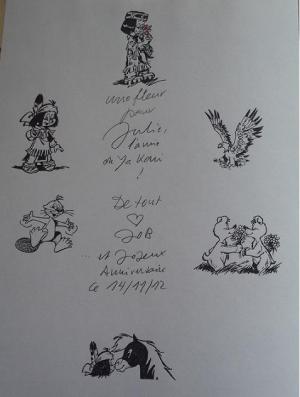 une fleur
pour
Julie,
l'amie
de Yakari
!
De tout
♡
JOB
... et Joyeux
Anniversaire
ce 14/11/12